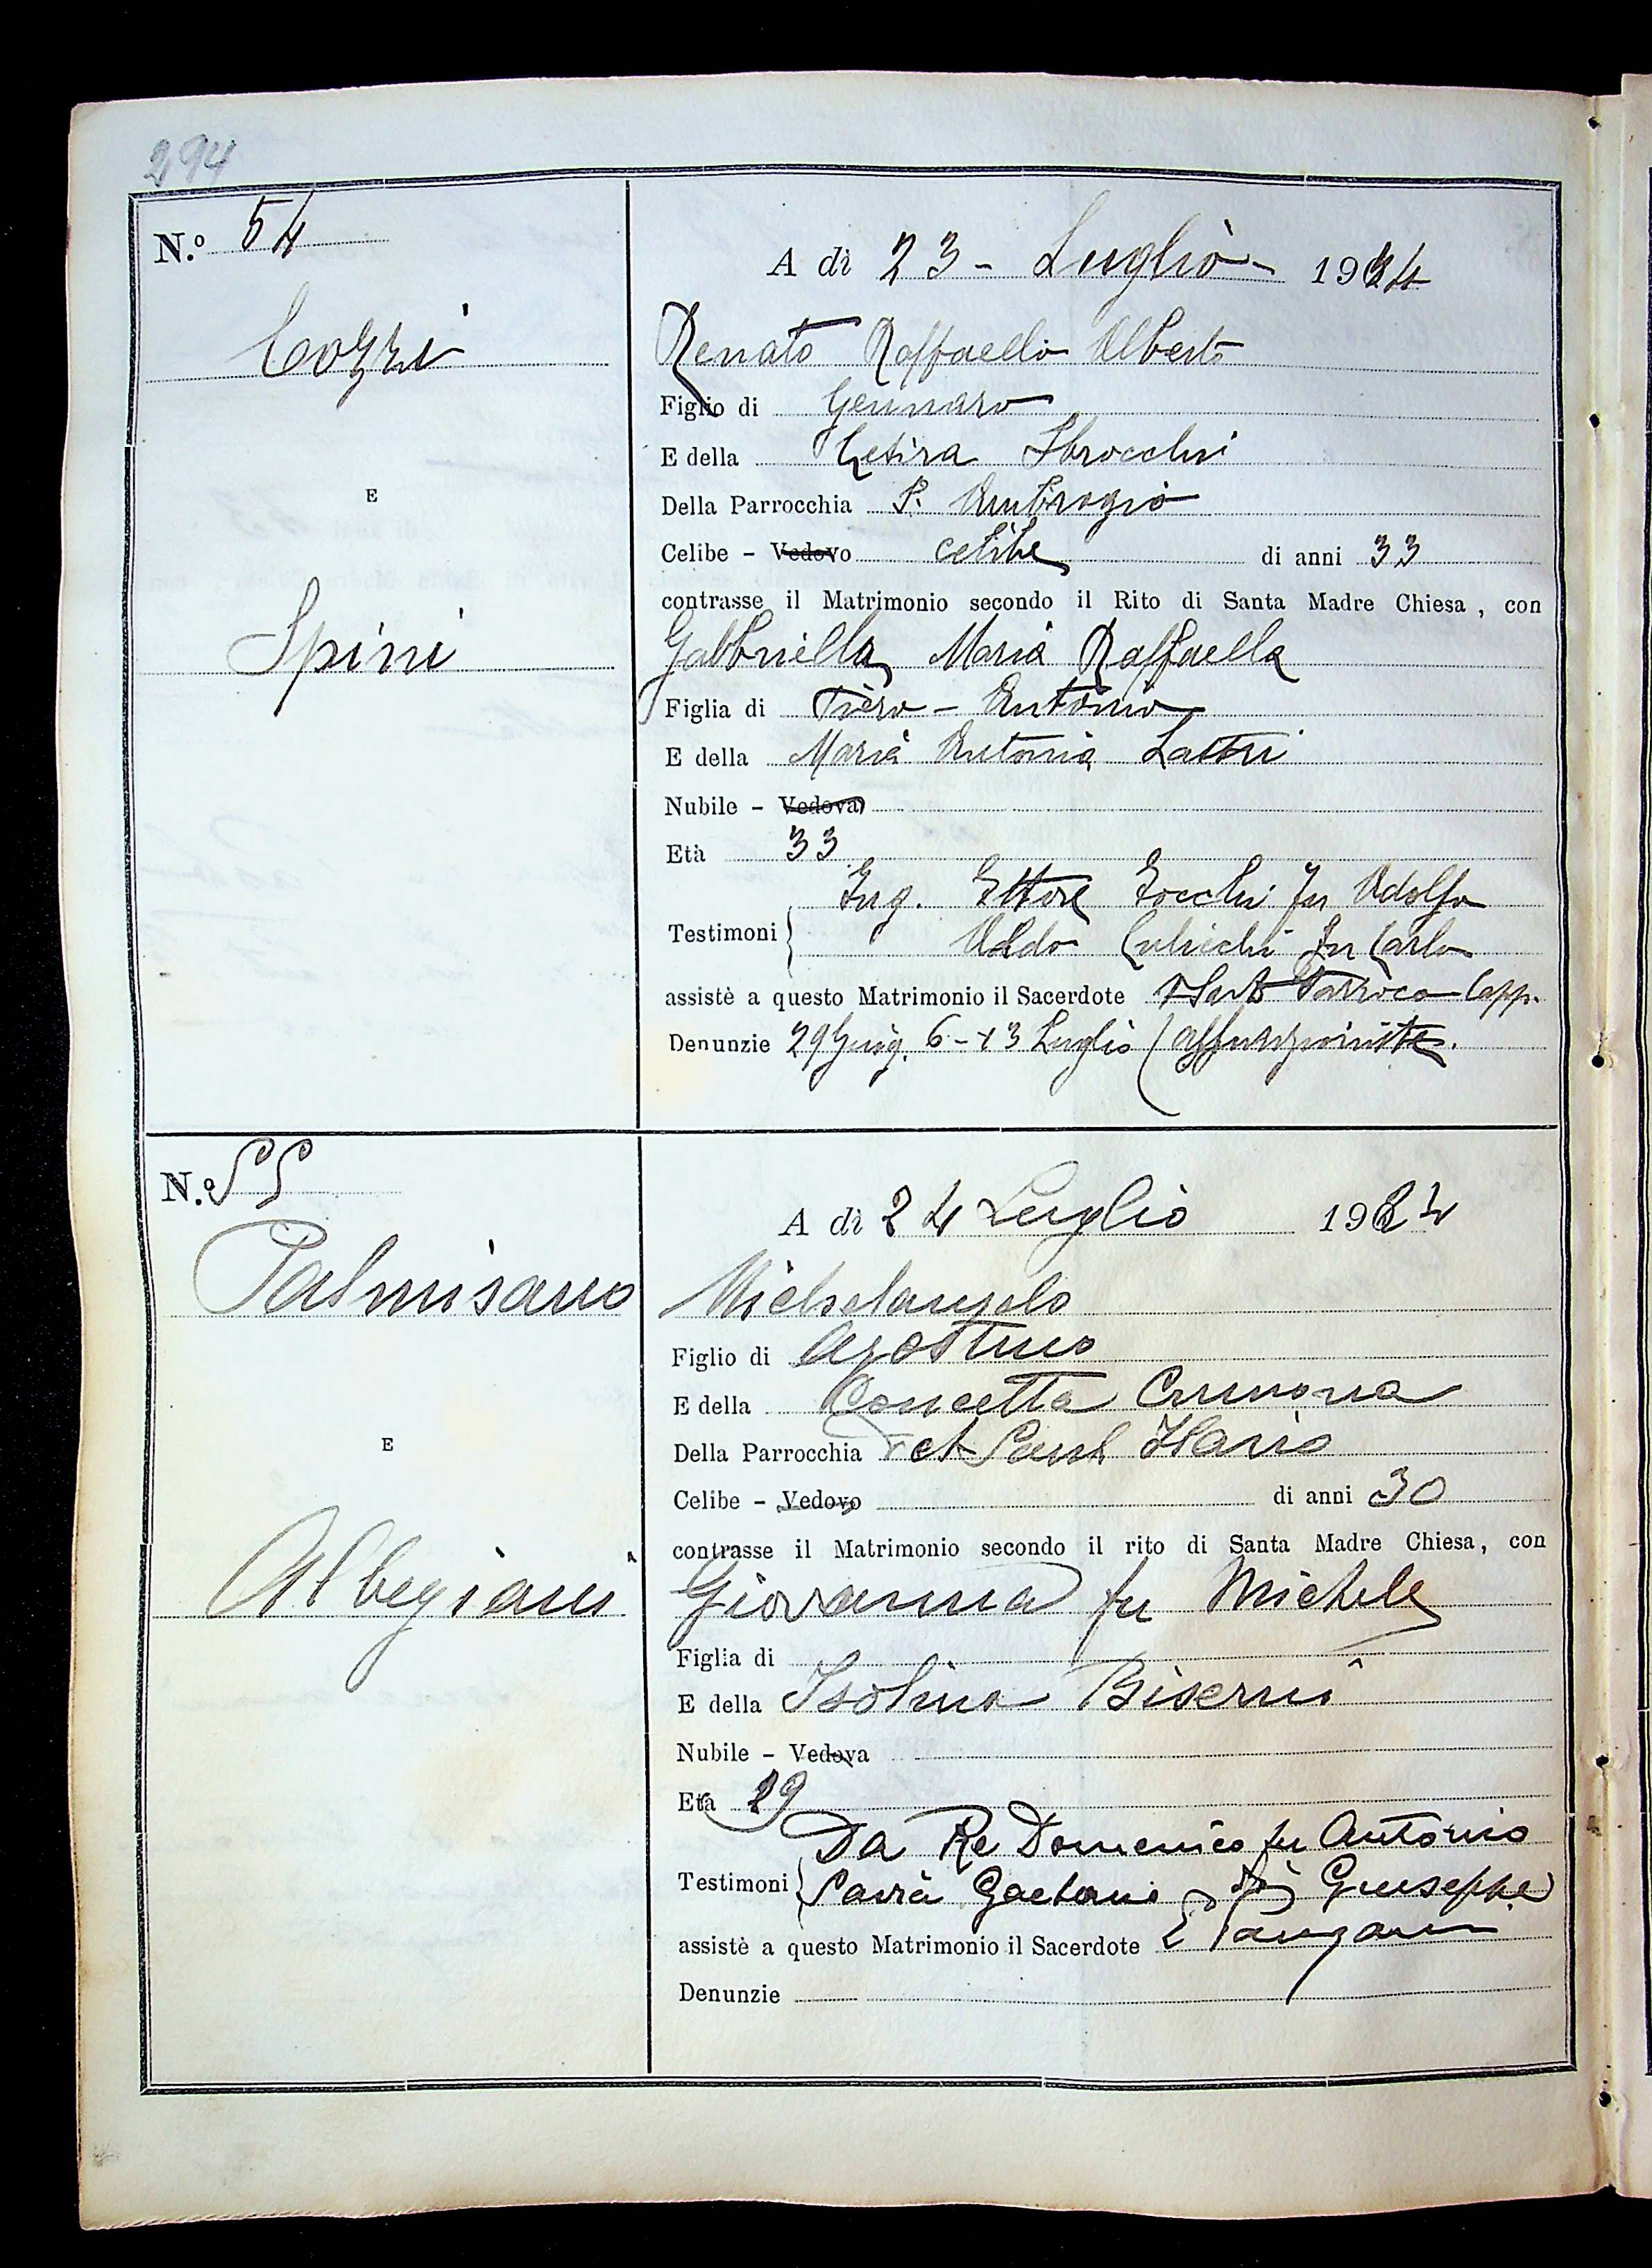 294
N.o 54
A dì 23 - Luglio - 1924
Cozzi
Renato Raffaello Alberto
Figlio di Gennaro
E della Cesira Sbrocchi
Della Parrocchia S. Ambrogio
E
Celibe - Vedovo celibe di anni 33
contrasse il Matrimonio secondo il Rito di Santa Madre Chiesa, con
Spini
Gabbriella Maria Raffaella
Figlia di Piero - Antonio
E della Maria Antonia Lastri
Nubile - Vedova
Età 33
Ing. Ettore Zocchi fu Adolfo
Testimoni
Aldo fu Carlo
assistè a questo Matrimonio il Sacerdote Parroco Capp.
Denunzie 29 Giug. 6 - 13 Luglio
N.o 55
A dì 24 Luglio 1924
Palmisano
Michelangelo
Figlio di Agostino
E della Concetta Cremona
Della Parrocchia Ilario
E
Celibe - Vedovo di anni 30
contrasse il Matrimonio secondo il rito di Santa Madre Chiesa, con
Albegiani
Giovanna fu Michele
Figlia di
E della Isolina Biserni
Nubile - Vedova
Età 29
Da Re Domenico fu Antonio
Testimoni
Savà Gaetano di Giuseppe
assistè a questo Matrimonio il Sacerdote
Denunzie